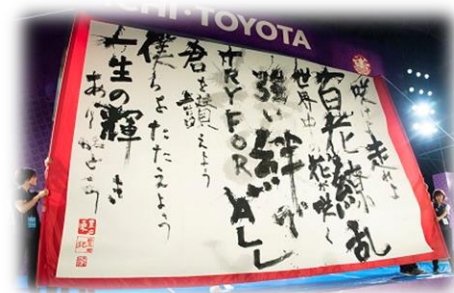 ICHI・TOYOTA
咲けよ 走れよ
百花繚乱
世界中の花が咲く
強い絆が
TRY FOR ALL
君を讃えよう
僕らをたたえよう
一生の輝き
ありがとう